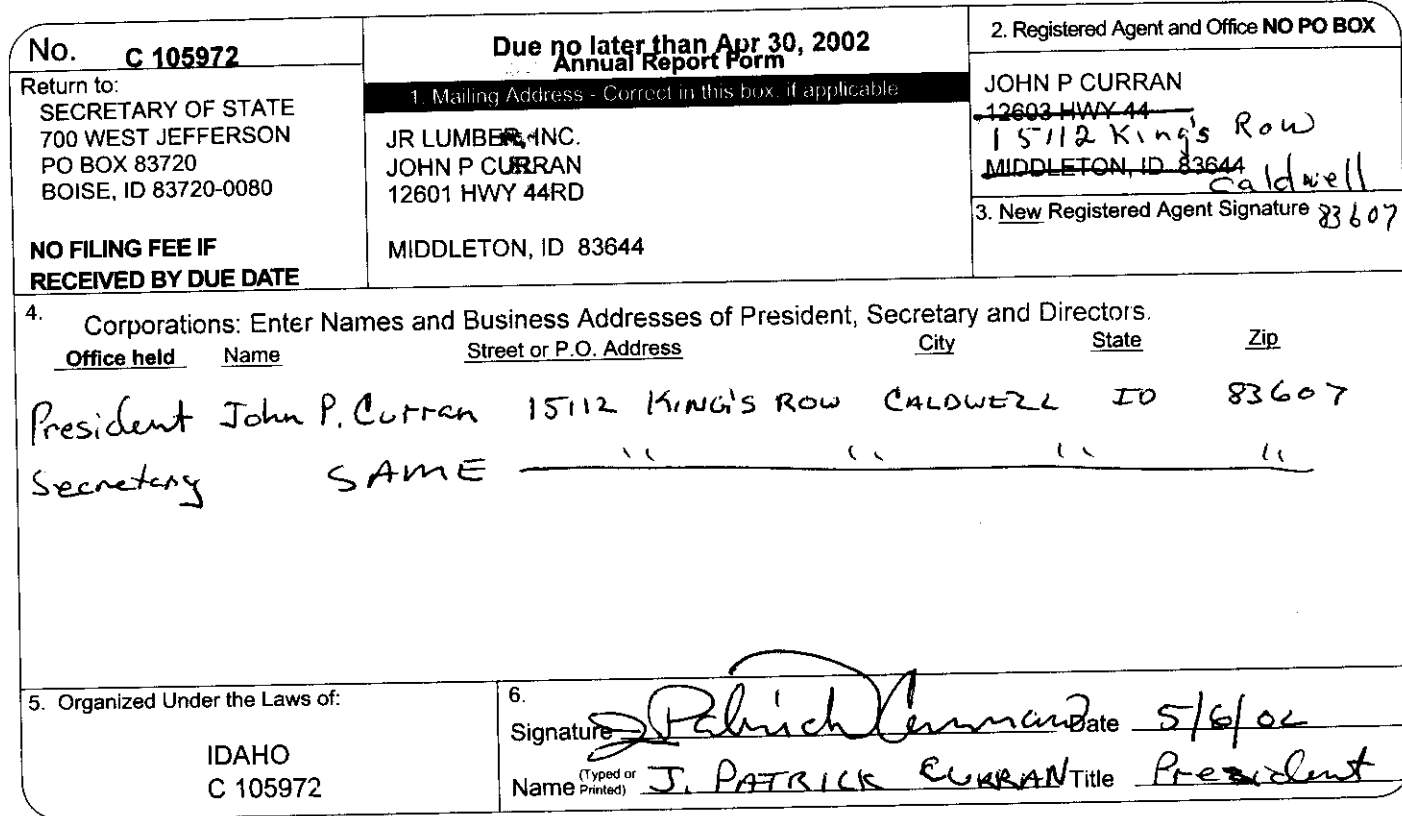 No. C 105972
Return to:
SECRETARY OF STATE
700 WEST JEFFERSON
PO BOX 83720
BOISE, ID 83720-0080
NO FILING FEE IF
RECEIVED BY DUE DATE
Due no later than Apr 30, 2002
Annual Report Form
1. Mailing Address - Correct in this box, if applicable
JR LUMBER, INC.
JOHN P CURRAN
12601 HWY 44RD
MIDDLETON, ID 83644
2. Registered Agent and Office NO PO BOX
JOHN P CURRAN
12603 HWY 44
15112 King's Row
MIDDLETON, ID 83644
Caldwell
3. New Registered Agent Signature 83607
4. Corporations: Enter Names and Business Addresses of President, Secretary and Directors.
Office held Name Street or P.O. Address City State Zip
President John P. Curran 15112 KING'S ROW CALDWELL ID 83607
Secretary SAME " " " "
5. Organized Under the Laws of:
IDAHO
C 105972
6.
Signature J Patrick Curran Date 5/6/02
Name (Typed or Printed) J. PATRICK CURRAN Title President